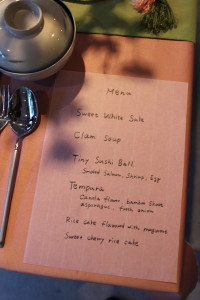 Menu
Sweet White Sake
Clam Soup
Tiny Sushi Ball
Smoked Salmon, Shrimp, Egg
Tempura
Canola flower, bamboo shoot
asparagus, fresh onion
Rice cake flavored with
Sweet cherry rice cake